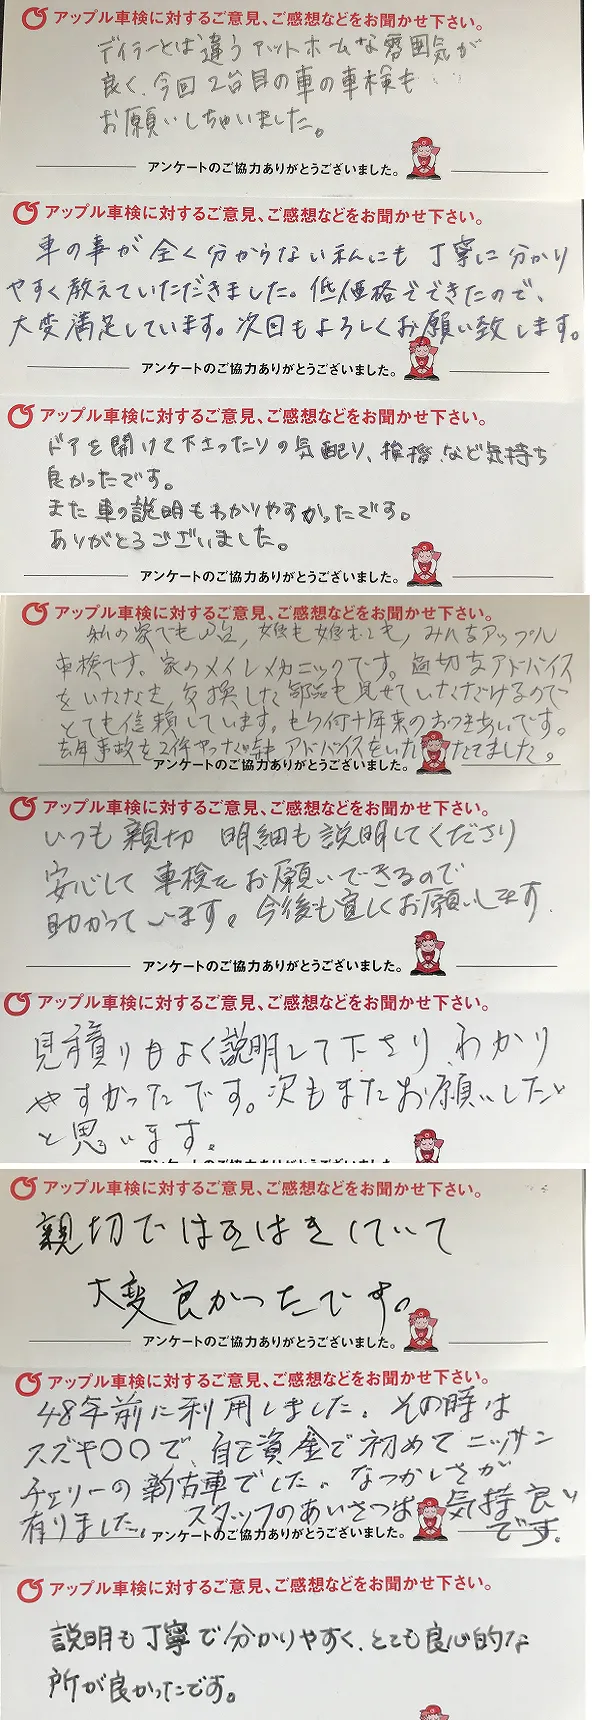 アップル車検に対するご意見、ご感想などをお聞かせ下さい。
ディラーとは違うアットホームな雰囲気が
良く、今回2台目の車の車検も
お願いしちゃいました。
アンケートのご協力ありがとうございました。
アップル車検に対するご意見、ご感想などをお聞かせ下さい。
車の事が全く分からない私にも丁寧に分かり
やすく教えていただきました。低価格でできたので、
大変満足しています。次回もよろしくお願い致します。
アンケートのご協力ありがとうございました。
アップル車検に対するご意見、ご感想などをお聞かせ下さい。
ドアを開けて下さったりの気配り、挨拶など気持ち
良かったです。
また車の説明もわかりやすかったです。
ありがとうございました。
アンケートのご協力ありがとうございました。
アップル車検に対するご意見、ご感想などをお聞かせ下さい。
私の家でも みんなアップル
車検です。家のメイレメカニックです。適切なアドバイス
をいただき、交換した部品も見せていただけるので
とても信頼しています。もう付十年来のおつきあいです。
去年事故を2件やった時 アドバイスをいただてました。
アンケートのご協力ありがとうございました。
アップル車検に対するご意見、ご感想などをお聞かせ下さい。
いつも親切 明細も説明してくださり
安心して車検をお願いできるので
助かっています。今後も宜しくお願いします.
アンケートのご協力ありがとうございました。
アップル車検に対するご意見、ご感想などをお聞かせ下さい。
見積りもよく説明して下さり、わかり
やすかったです。次もまたお願いしたい
と思います。
アンケートのご協力ありがとうございました
アップル車検に対するご意見、ご感想などをお聞かせ下さい。
親切ではきはきしていて
大変良かったです。
アンケートのご協力ありがとうございました。
アップル車検に対するご意見、ご感想などをお聞かせ下さい。
48年前に利用しました。その時は
スズキ〇〇で、自己資金で初めてニッサン
チェリーの新古車でした。なつかしさが
有りました。スタッフのあいさつは気持良い
です.
アンケートのご協力ありがとうございました。
アップル車検に対するご意見、ご感想などをお聞かせ下さい。
説明も丁寧で分かりやすく、とても良心的な
所が良かったです。